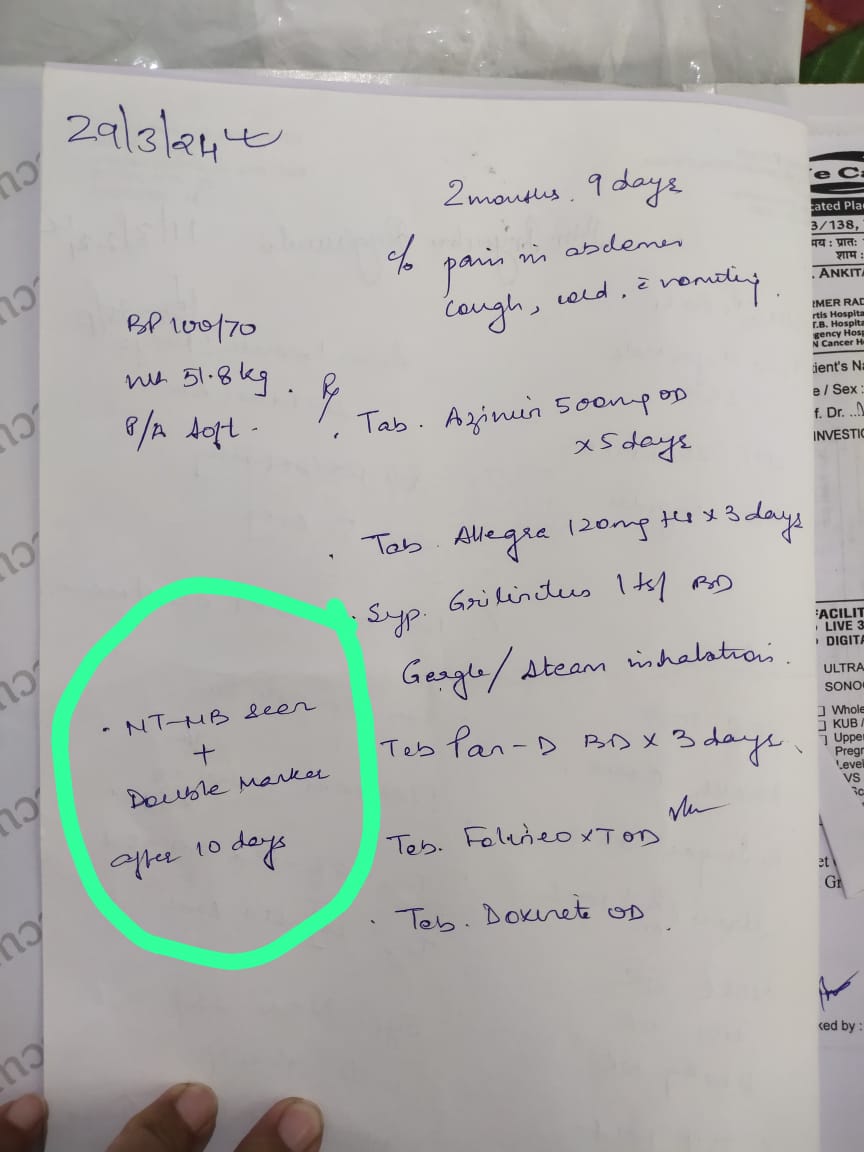 29/3/24
2 months. 9 days
c/o pain in abdomen
cough, cold, c̄ vomiting.
BP 100/70
wt 51.8 kg.
P/A soft.
Rx
Tab. 500mg OD
x 5 days
Tab. Allegra 120mg HS x 3 days
Syp. Grilinctus 1 tsf BD
Gargle/ Steam inhalation.
Tab Pan-D BD x 3 days.
Tab. OD
Tab. Doxinate OD.
NT-NB Scan
+
Double Marker
after 10 days
e Ca
cated Pla
3/138,
मय : प्रातः
शाम :
. ANKITA
RMER RAD
rtis Hospita
T.B. Hospita
gency Hosp
N Cancer H
tient's Na
e / Sex :
f. Dr.
INVESTIG
FACILIT
LIVE 3
DIGITA
ULTRA
SONO
Whole
KUB /
Upper
Pregn
Level
VS
et
Gr
ked by :